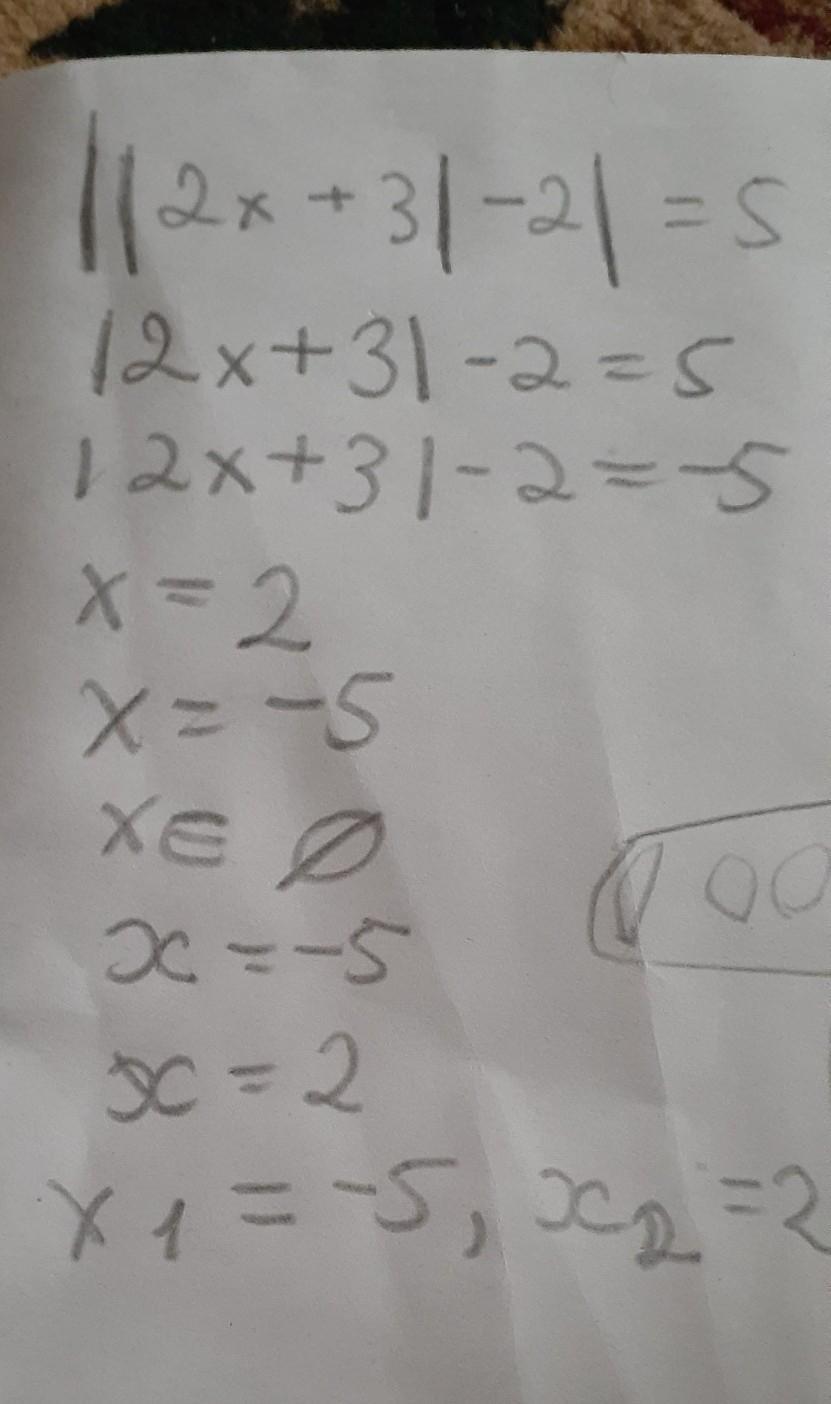 ||2x + 3| - 2| = 5
|2x + 3| - 2 = 5
|2x + 3| - 2 = -5
x = 2
x = -5
x ∈ ∅
x = -5
x = 2
x1 = -5, x2 = 2